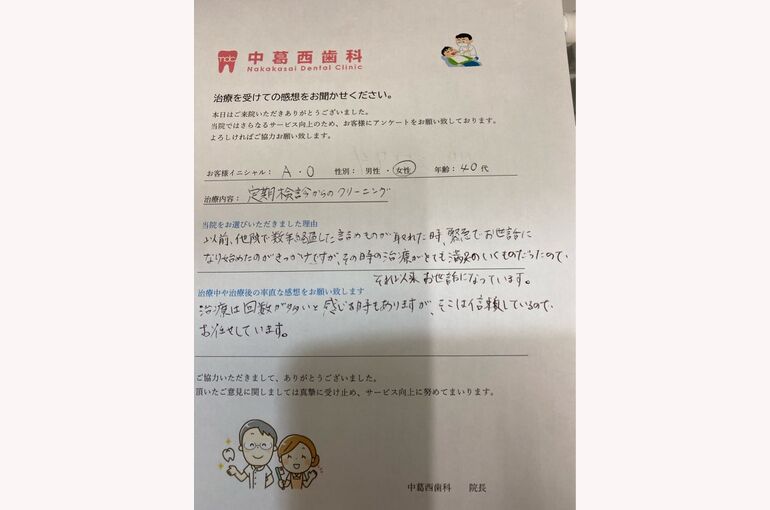 mdc
中葛西歯科
Nakakasai Dental Clinic
治療を受けての感想をお聞かせください。
本日はご来院いただきありがとうございました。
当院ではさらなるサービス向上のため、お客様にアンケートをお願い致しております。
よろしければご協力お願い致します。
お客様イニシャル： A・O 性別： 男性 ・ 女性 年齢：40代
治療内容：定期検診からのクリーニング
当院をお選びいただきました理由
以前、他院で数年経過した詰めものが取れた時、緊急でお世話に
なり始めたのがきっかけですが、その時の治療がとても満足のいくものだったので、
それ以来お世話になっています。
治療中や治療後の率直な感想をお願い致します
治療は回数が多いと感じる時もありますが、そこは信頼しているので、
お任せしています。
ご協力いただきまして、ありがとうございました。
頂いたご意見に関しましては真摯に受け止め、サービス向上に努めてまいります。
中葛西歯科 院長